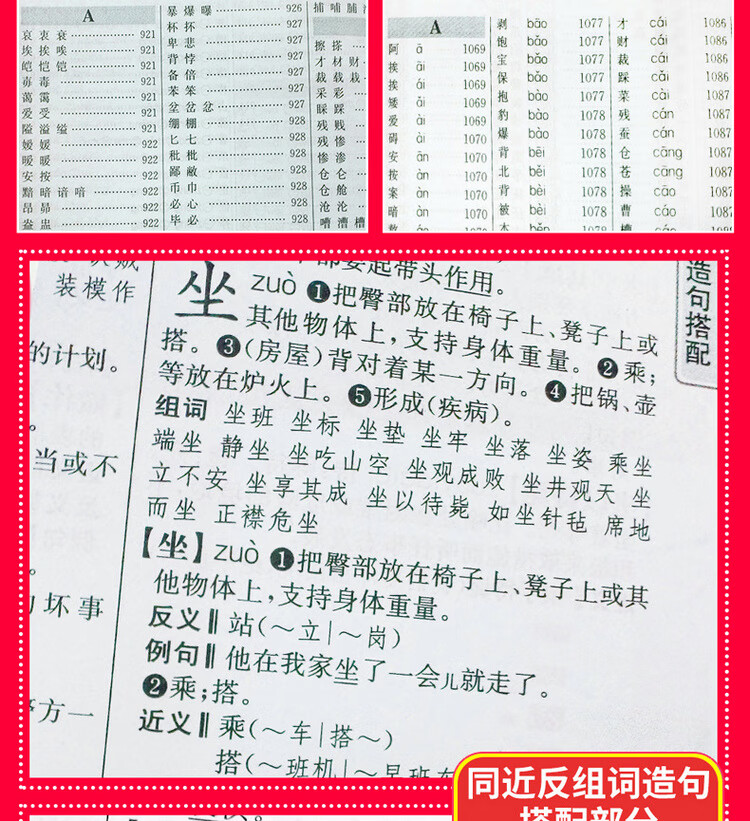 A
哀 衷 衰 921
埃 挨 唉 921
皑 恺 铠 921
毐 毒 921
蔼 霭 921
爱 受 921
隘 溢 缢 921
嫒 媛 922
暧 暖 922
安 按 922
黯 暗 谙 喑 922
昂 昴 922
盎 盅 922
暴 爆 曝 926
杯 抔 927
卑 悲 927
背 悖 927
备 倍 927
苯 笨 927
坌 岔 忿 927
绷 棚 928
匕 七 928
秕 枇 928
鄙 敝 928
币 巾 928
必 心 928
毕 必 928
捕 哺 脯
擦 搽
才 材 财
裁 栽 载
采 彩
睬 踩
残 贱
残 惨
惨 渗
仓 仑
仓 舱
沧 沦
嘈 漕 槽
A
阿 ā 1069
挨 āi 1069
挨 ái 1069
矮 ǎi 1069
爱 ài 1069
碍 ài 1070
安 ān 1070
按 àn 1070
案 àn 1070
暗 àn 1070
剥 bāo 1077
饱 bǎo 1077
宝 bǎo 1077
保 bǎo 1077
抱 bào 1077
豹 bào 1078
爆 bào 1078
背 bēi 1078
北 běi 1078
背 bèi 1078
被 bèi 1078
本 běn 1078
才 cái 1086
财 cái 1086
裁 cái 1086
踩 cǎi 1086
菜 cài 1087
残 cán 1087
蚕 cán 1087
仓 cāng 1087
苍 cāng 1087
操 cāo 1087
曹 cáo 1087
装模作
的计划。
当或不
坏事
方一
起带头作用。
坐 zuò ❶把臀部放在椅子上、凳子上或
其他物体上,支持身体重量。❷乘;
搭。❸(房屋)背对着某一方向。❹把锅、壶
等放在炉火上。❺形成(疾病)。
组词 坐班 坐标 坐垫 坐牢 坐落 坐姿 乘坐
端坐 静坐 坐吃山空 坐观成败 坐井观天 坐
立不安 坐享其成 坐以待毙 如坐针毡 席地
而坐 正襟危坐
【坐】zuò ❶把臀部放在椅子上、凳子上或其
他物体上,支持身体重量。
反义‖站(~立|~岗)
例句‖他在我家坐了一会儿就走了。
❷乘;搭。
近义‖乘(~车|搭~)
搭(~班机|~早班车
造句搭配
同近反组词造句
搭配部分